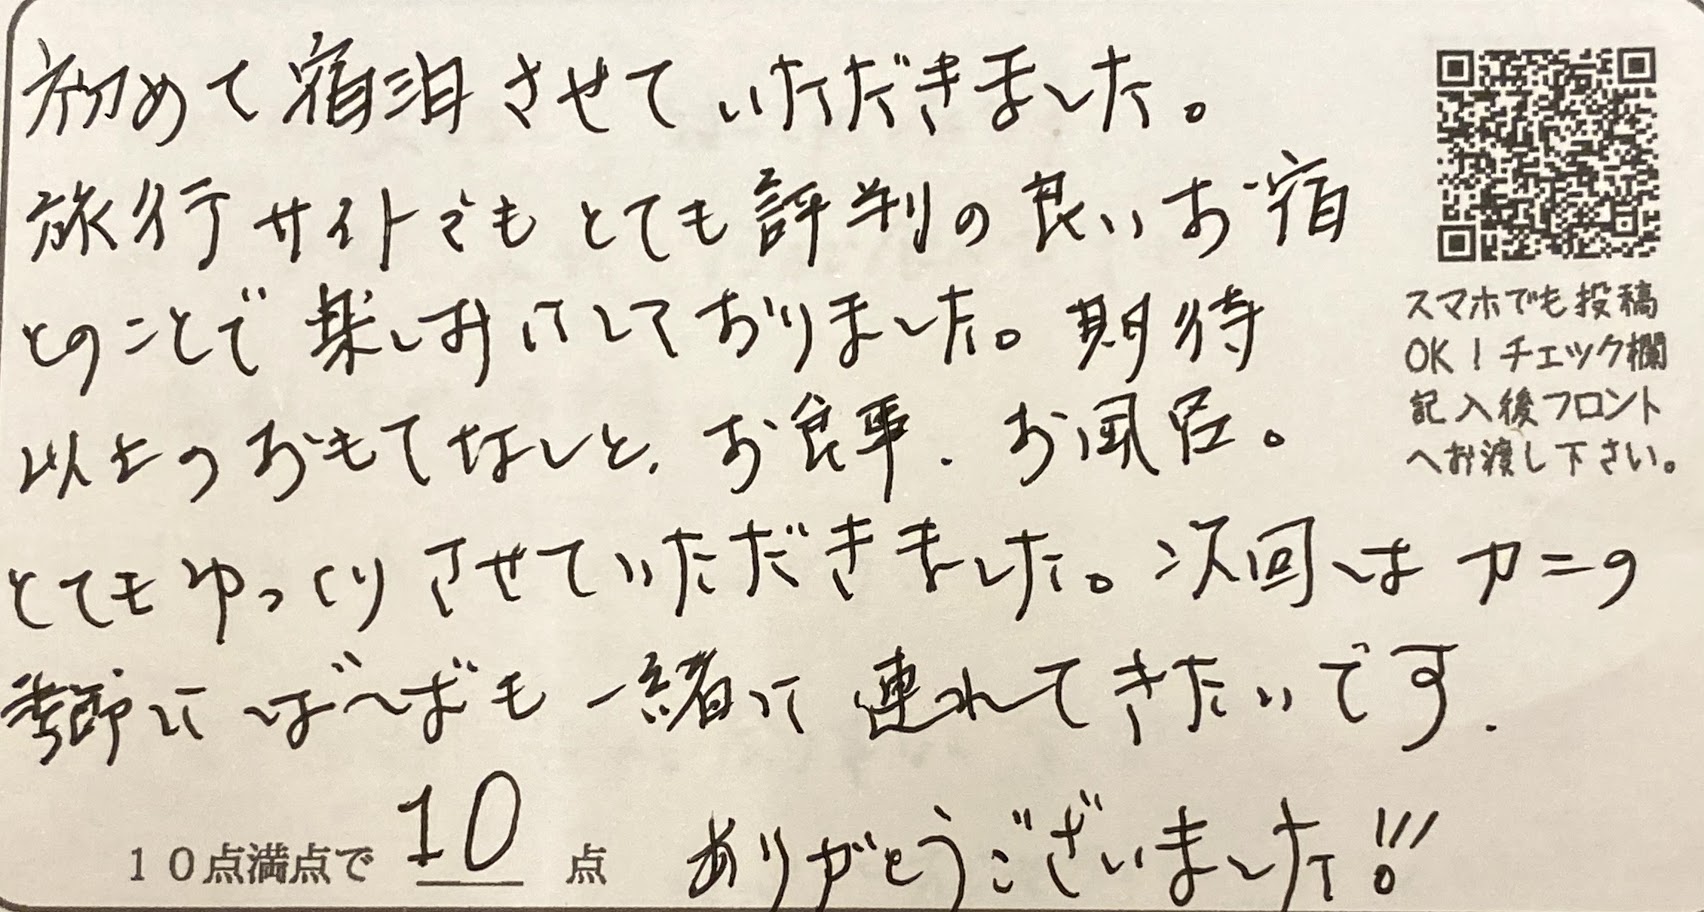 初めて宿泊させていただきました。
旅行サイトでもとても評判の良いお宿
とのことで楽しみにしておりました。期待
以上のおもてなしと、お食事、お風呂。
とてもゆっくりさせていただきました。次回はカニの
季節にばぁばも一緒に連れてきたいです.
10点満点で 10 点 ありがとうございました!!!
スマホでも投稿
OK!チェック欄
記入後フロント
へお渡し下さい。